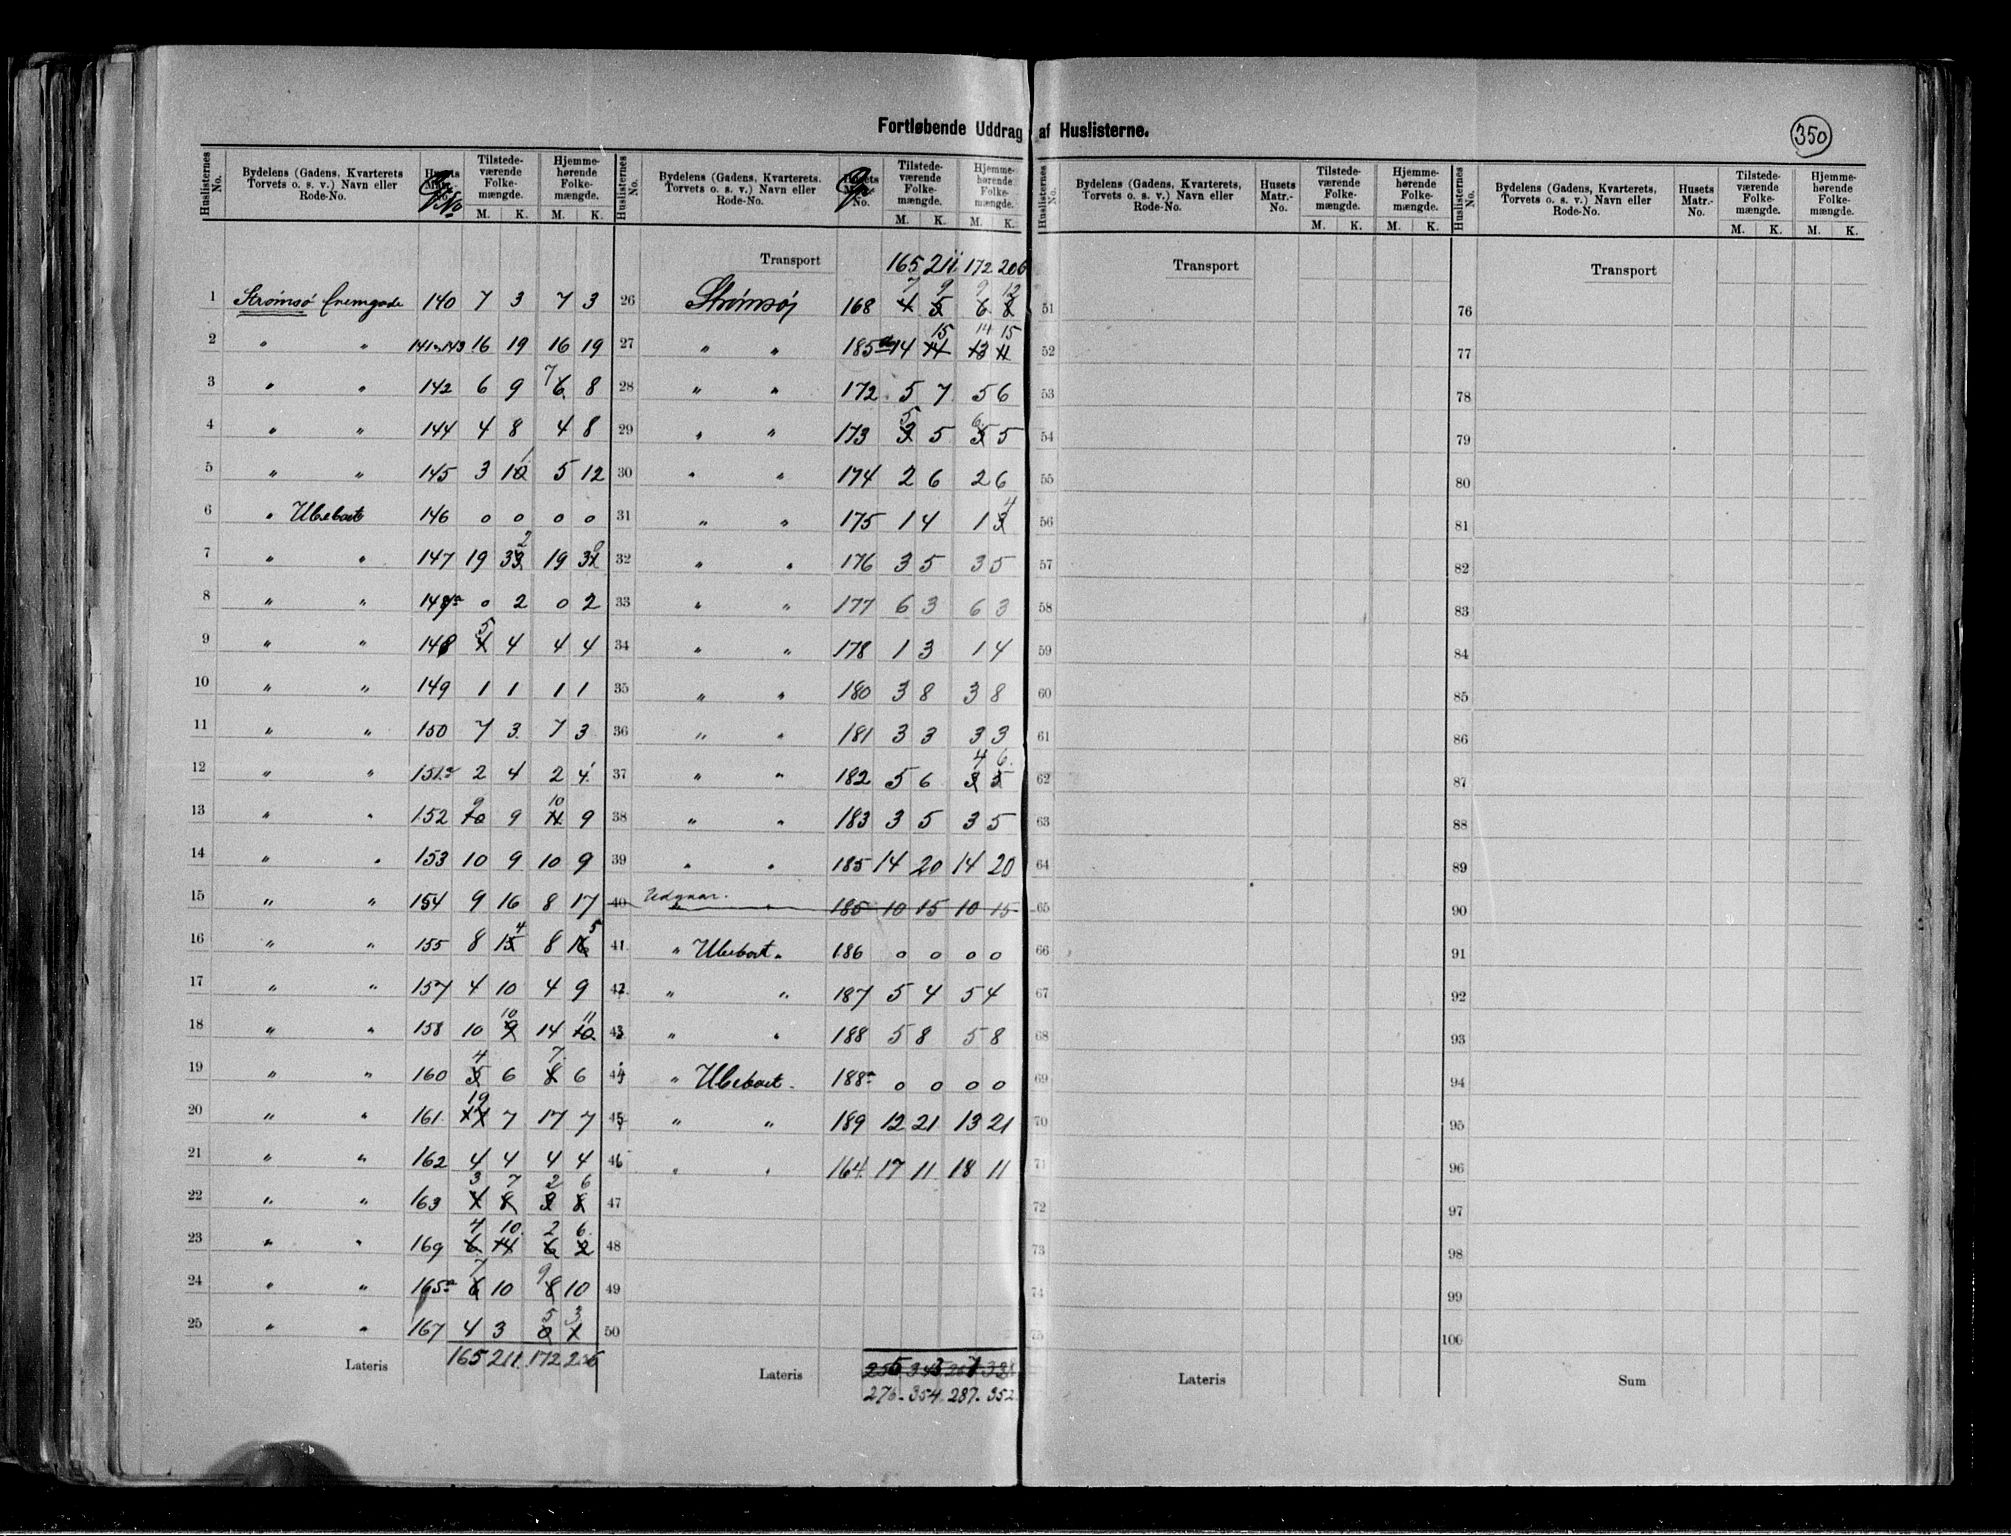 Fortløbende Uddrag af Huslisterne.
350
Huslisternes No. Bydelens (Gadens, Kvarterets Torvets o. s. v.) Navn eller Rode-No. Husets Matr. No. Tilstedeværende Folkemængde. M. K. Hjemmehørende Folkemængde. M. K.
Huslisternes No. Bydelens (Gadens, Kvarterets. Torvets o. s. v.) Navn eller Rode-No. Husets No. Tilstedeværende Folkemængde. M. K. Hjemmehørende Folkemængde. M. K.
Huslisternes No. Bydelens (Gadens, Kvarterets, Torvets o. s. v.) Navn eller Rode-No. Husets Matr.-No. Tilstedeværende Folkemængde. M. K. Hjemmehørende Folkemængde. M. K.
Huslisternes No. Bydelens (Gadens, Kvarterets, Torvets o. s. v.) Navn eller Rode-No. Husets Matr.-No. Tilstedeværende Folkemængde. M. K. Hjemmehørende Folkemængde. M. K.
1 Strømsø 140 7 3 7 3
2 " " 141 143 16 19 16 19
3 " " 142 6 9 7 6 8
4 " " 144 4 8 4 8
5 " " 145 3 10 5 12
6 " Ubeboet 146 0 0 0 0
7 " " 147 19 33 2 19 31
8 " " 147a 0 2 0 2
9 " " 148 5 4 4 4 4
10 " " 149 1 1 1 1
11 " " 150 7 3 7 3
12 " " 151a 2 4 2 4
13 " " 152 9 10 9 10 11 9
14 " " 153 10 9 10 9
15 " " 154 9 16 8 17
16 " " 155 8 15 4 8 16 5
17 " " 157 4 10 4 9
18 " " 158 10 10 9 14 11 10
19 " " 160 4 5 6 7 8 6
20 " " 161 19 17 7 17 7
21 " " 162 4 4 4 4
22 " " 163 3 4 7 8 2 3 6 8
23 " " 169 4 6 10 14 2 6 6 2
24 " " 165a 7 6 10 9 8 10
25 " " 167 4 3 5 0 3 1
Lateris 165 211 172 206
Transport 165 211 172 206
26 Strømsø 168 7 4 9 5 9 6 12 8
27 " " 185a 14 15 14 14 13 15 11
28 " " 172 5 7 5 6
29 " " 173 5 3 5 6 5 5
30 " " 174 2 6 2 6
31 " " 175 1 4 1 4 3
32 " " 176 3 5 3 5
33 " " 177 6 3 6 3
34 " " 178 1 3 1 4
35 " " 180 3 8 3 8
36 " " 181 3 3 3 3
37 " " 182 5 6 4 3 6 5
38 " " 183 3 5 3 5
39 " " 185 14 20 14 20
40 Udgaar. " 185 10 15 10 15
41 " Ubeboet " 186 0 0 0 0
42 " " 187 5 4 5 4
43 " " 188 5 8 5 8
44 " Ubeboet 188a 0 0 0 0
45 " " 189 12 21 13 21
46 " " 164 17 11 18 11
47
48
49
50
Lateris
276 - 354 287 - 352
Transport
51
52
53
54
55
56
57
58
59
60
61
62
63
64
65
66
67
68
69
70
71
72
73
74
75
Lateris
Transport
76
77
78
79
80
81
82
83
84
85
86
87
88
89
90
91
92
93
94
95
96
97
98
99
100
Sum